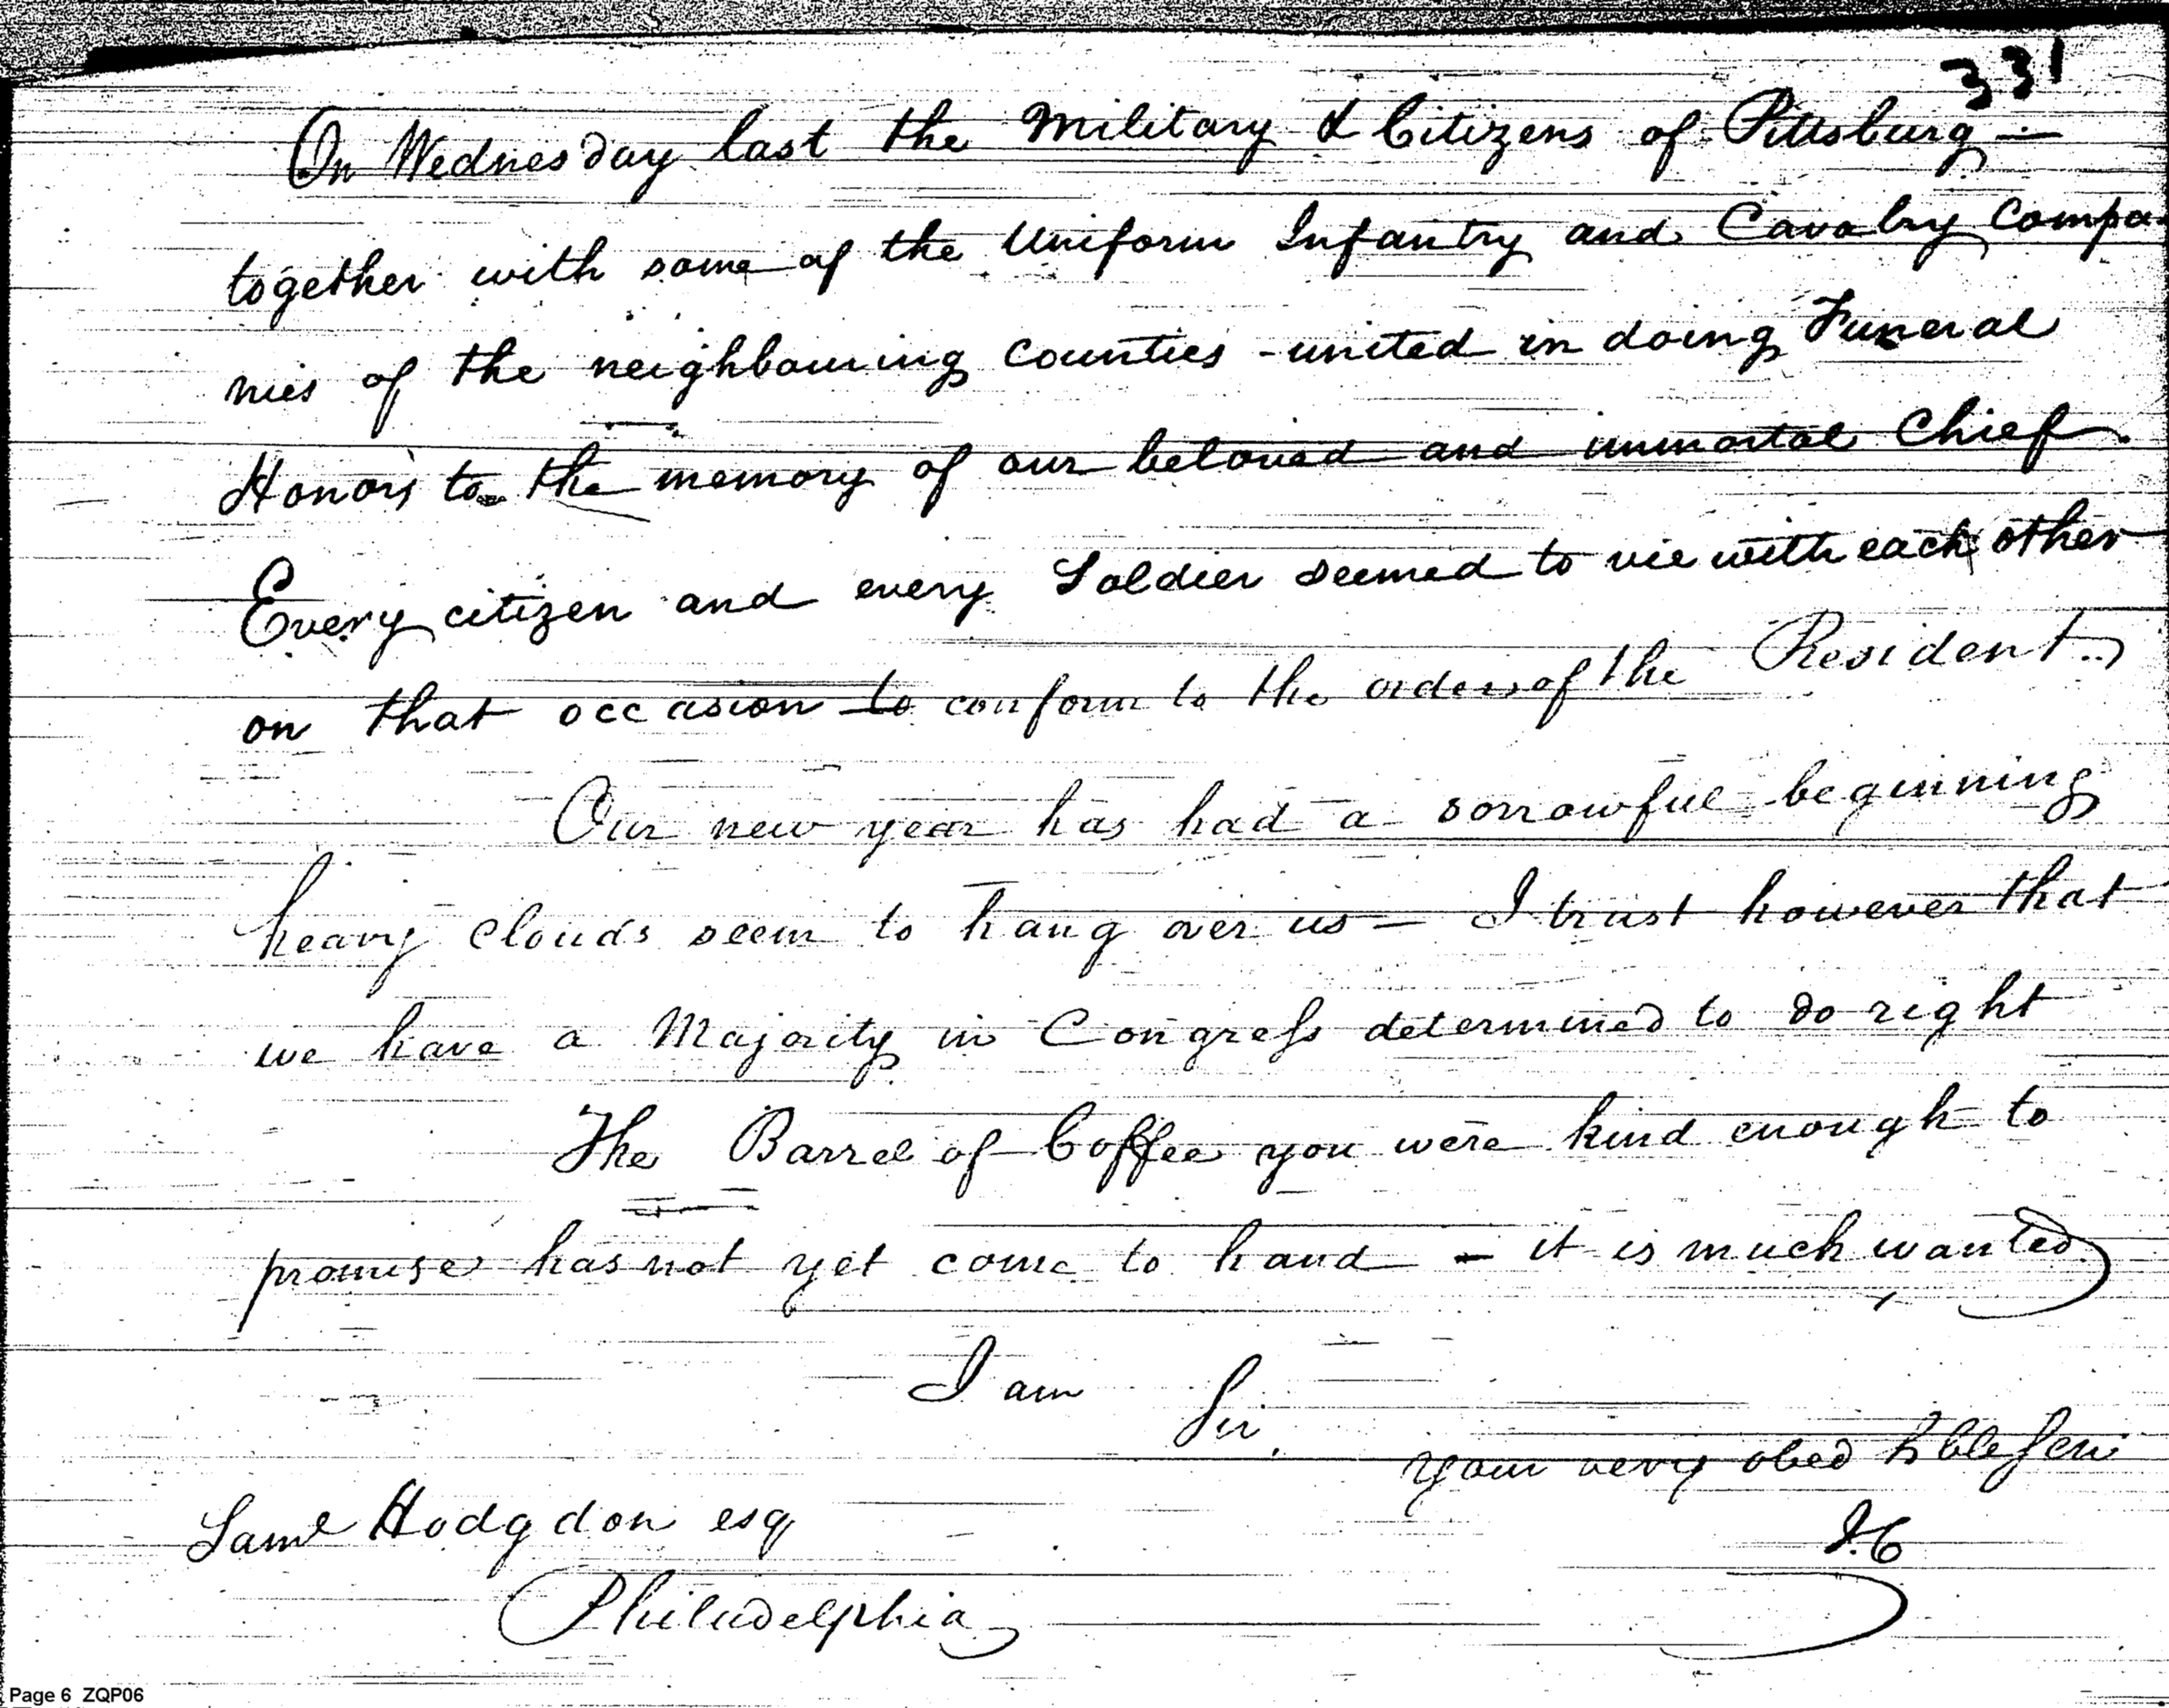 331
On Wednesday last the Military & Citizens of Pittsburg —
together with some of the Uniform Infantry and Cavalry Compa-
nies of the neighbouring counties - united in doing Funeral
Honors to the memory of our beloved and immortal Chief.
Every citizen and every Soldier seemed to vie with each other
on that occasion to conform to the orders of the President
Our new year has had a sorrowful beginning
heavy clouds seem to hang over us — I trust however that
we have a Majority in Congress determined to do right
The Barrel of Coffee you were kind enough to
promise has not yet come to hand — it is much wanted
I am
Sir.
your very obed hble serv
I.C
Saml Hodgdon esq
Philadelphia
Page 6 ZQP06